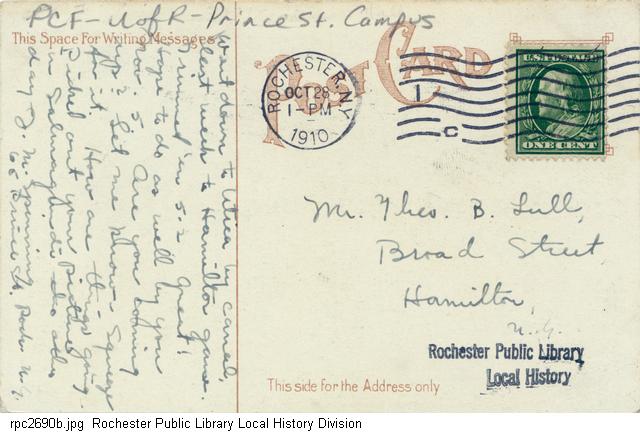 PCF - U of R - Prince St. Campus
This Space For Writing Messages
POST CARD
ROCHESTER, N.Y.
OCT 28
1 - PM
1910
1
C
U.S. POSTAGE
ONE CENT
Went down to Utica by canal,
last week to Hamilton game.
Trimmed 'em 5-2 Great!
Hope to do as well by you
Nov. 5. Are you coming
up? Let me know
for it. How are things going.
Picked out your picture
in
day J. M. Spinning
65 Prince St. Roch. N.Y.
Mr. Theo. B. Lull,
Broad Street
Hamilton,
N.Y.
Rochester Public Library
Local History
This side for the Address only
rpc2690b.jpg Rochester Public Library Local History Division